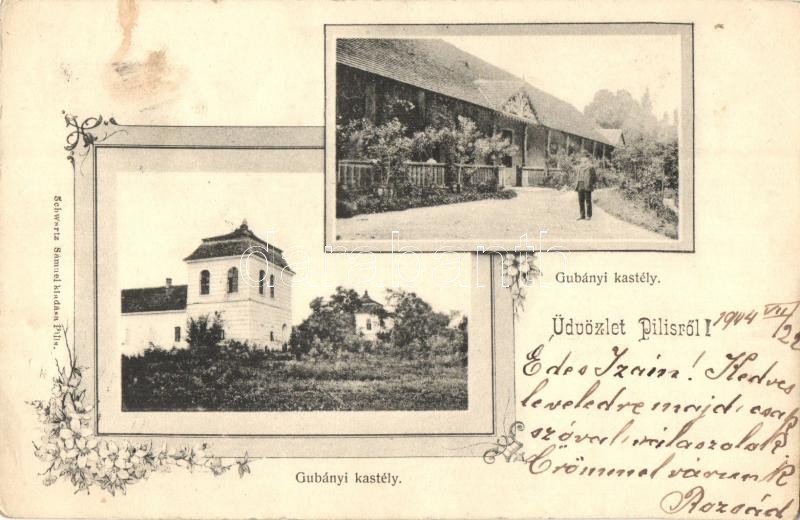 Gubányi kastély.
Schwartz Sámuel kiadása Pilis.
Gubányi kastély.
Üdvözlet Pilisről!
1904 VII/22
Édes Izám! Kedves
leveledre majd csak
szóval válaszolok
Örömmel várunk
Rozsád
darabanth